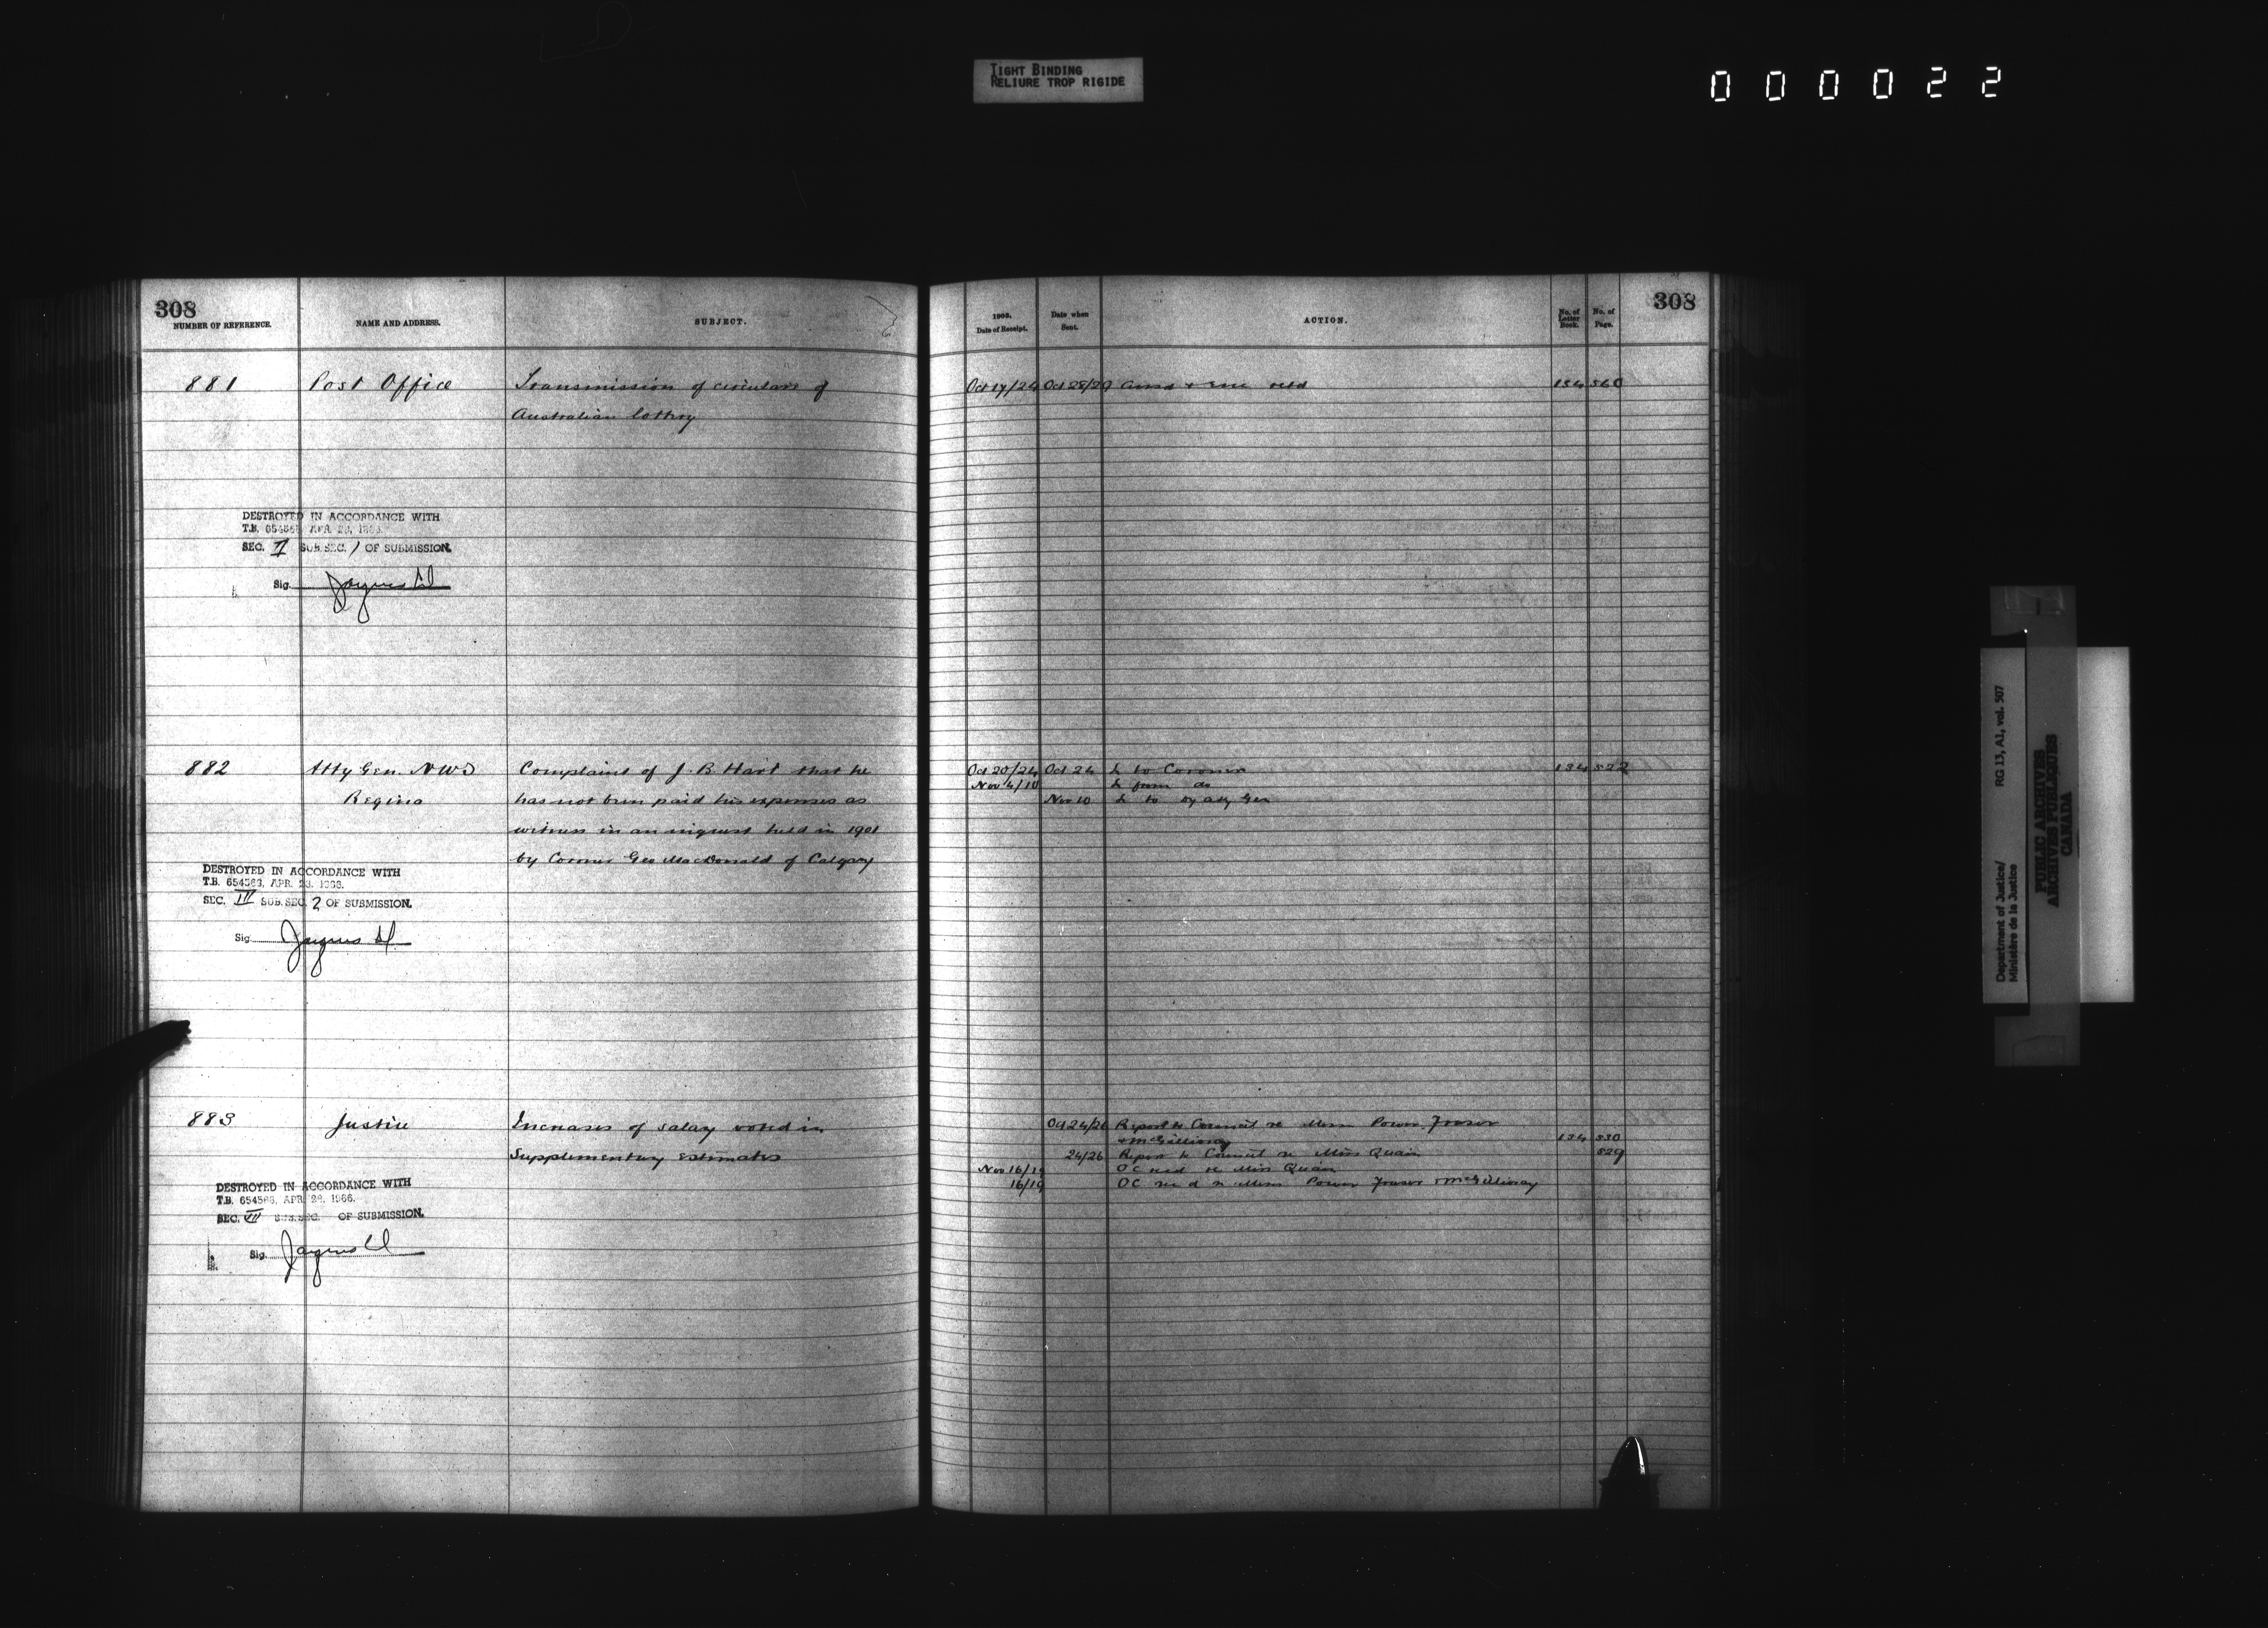 TIGHT BINDING
RELIURE TROP RIGIDE
000022
308
NUMBER OF REFERENCE.
NAME AND ADDRESS.
SUBJECT.
881
Post Office
Transmission of circulars of
Australian lottery
DESTROYED IN ACCORDANCE WITH
T.B. 654563 APR. 28, 1966.
SEC. II SUB. SEC. 1 OF SUBMISSION.
Sig.
882
Atty Gen. NWT
Regina
Complaint of J. B. Hart that he
has not been paid his expenses as
witness in an inquest held in 1901
by Coroner Geo MacDonald of Calgary
DESTROYED IN ACCORDANCE WITH
T.B. 654563, APR. 28, 1966.
SEC. III SUB. SEC. 2 OF SUBMISSION.
Sig.
883
Justice
Increases of salary voted in
Supplementary Estimates
DESTROYED IN ACCORDANCE WITH
T.B. 654563, APR. 28, 1966.
SEC. VII SUB. SEC. OF SUBMISSION.
Sig.
308
1903.
Date of Receipt.
Date when
Sent.
ACTION.
No. of
Letter
Book.
No. of
Page.
Oct 17/24 Oct 28/29 134 560
Oct 20/24 Oct 24 L to Coroner 134 522
Nov 4/10 L from do
Nov 10 L to Dy Atty Gen
Oct 24/26 Report to Council re Messrs Power Fraser
& McGillivray 134 530
24/26 Report to Council re Miss Quain 529
Nov 16/19 OC recd re Miss Quain
16/19 OC recd re Messrs Power Fraser & McGillivray
Department of Justice/
Ministère de la Justice
RG 13, A1, vol. 507
PUBLIC ARCHIVES
ARCHIVES PUBLIQUES
CANADA